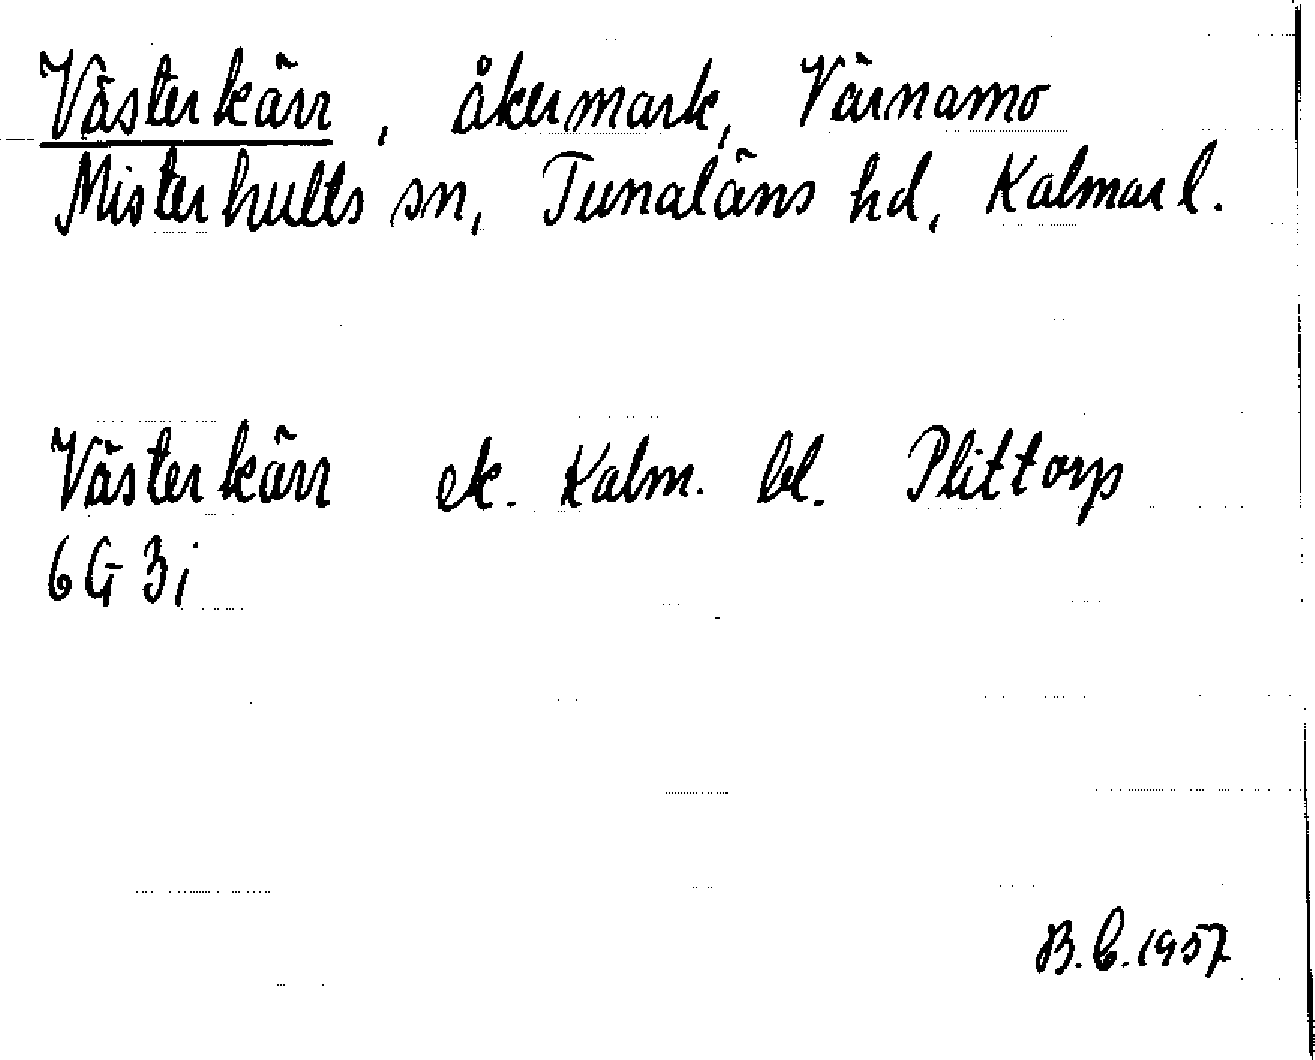 Västerkärr, åkermark, Värnamo
Misterhults sn, Tunaläns hd, Kalmar l.
Västerkärr ek. Kalm. bl. Plittorp
6 G 3i
B.C. 1957